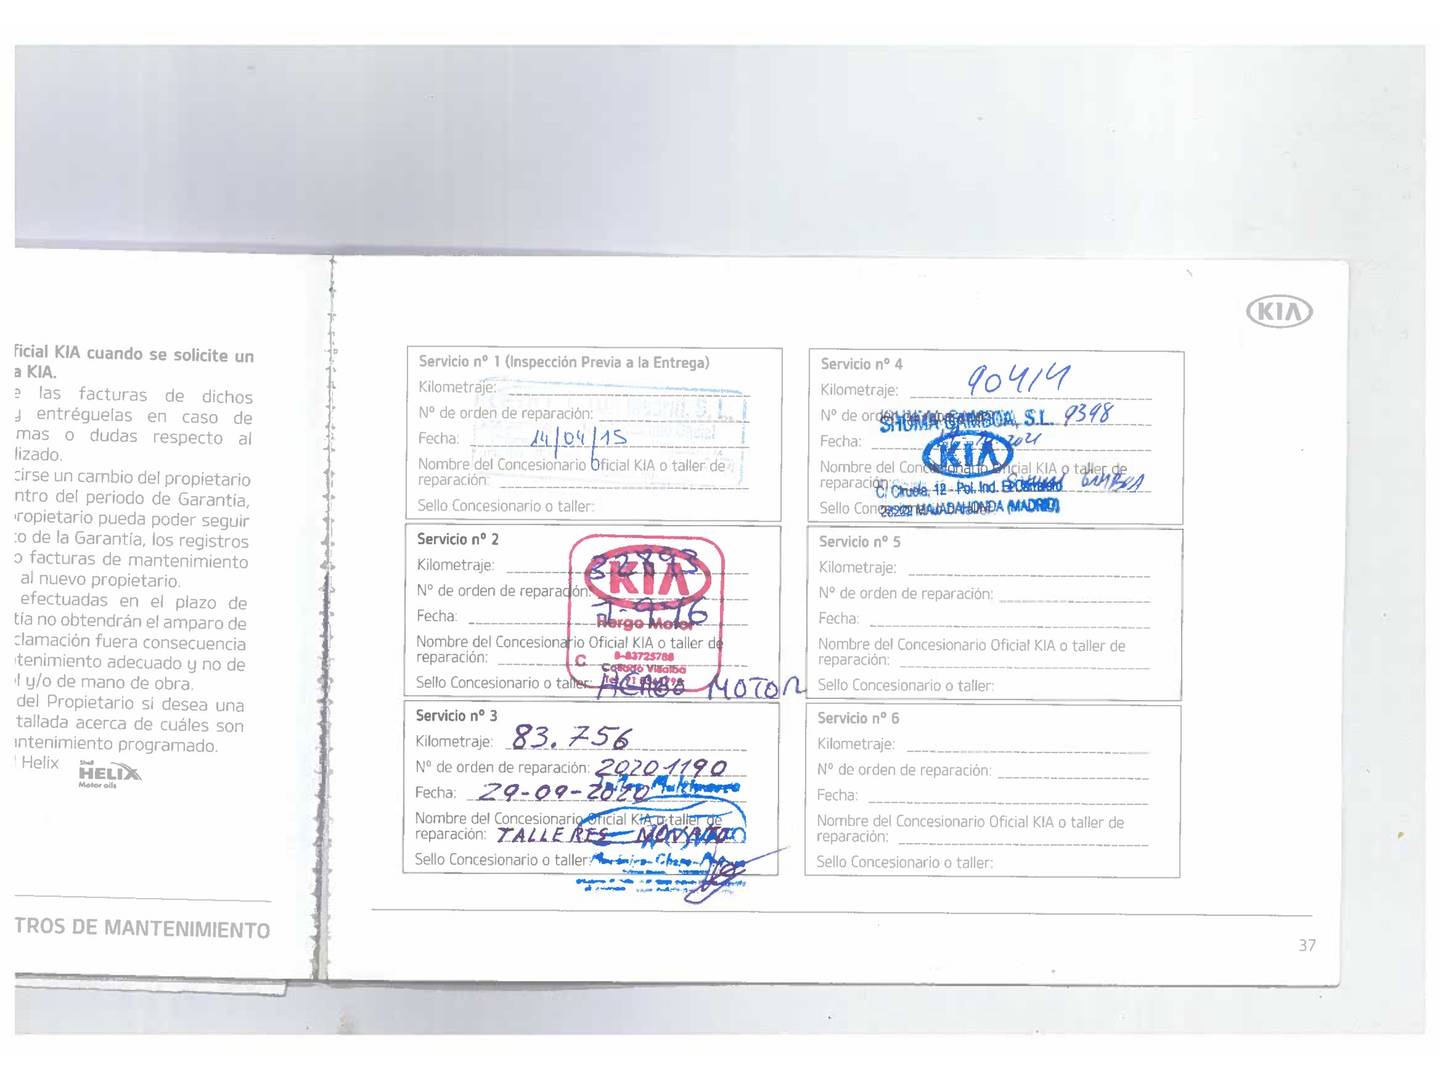 ficial KIA cuando se solicite un
a KIA.
e las facturas de dichos
y entréguelas en caso de
mas o dudas respecto al
lizado.
cirse un cambio del propietario
ntro del periodo de Garantía,
ropietario pueda poder seguir
o de la Garantía, los registros
o facturas de mantenimiento
al nuevo propietario.
efectuadas en el plazo de
tía no obtendrán el amparo de
clamación fuera consecuencia
tenimiento adecuado y no de
l y/o de mano de obra.
del Propietario si desea una
tallada acerca de cuáles son
antenimiento programado.
Helix
Shell
HELIX
Motor oils
TROS DE MANTENIMIENTO
KIA
Servicio nº 1 (Inspección Previa a la Entrega)
Kilometraje:
Nº de orden de reparación:
Fecha: 14/04/15
Nombre del Concesionario Oficial KIA o taller de
reparación:
Sello Concesionario o taller:
Servicio nº 2
Kilometraje: 32893
KIA
Nº de orden de reparación:
Fecha: 7-9-16
Hergo Motor
Nombre del Concesionario Oficial KIA o taller de
reparación:
B-83725788
Collado Villalba
Sello Concesionario o taller: MOTOR
Servicio nº 3
Kilometraje: 83.756
Nº de orden de reparación: 20201190
Fecha: 29-09-2020
Nombre del Concesionario Oficial KIA o taller de
reparación: TALLERES
Sello Concesionario o taller:
Servicio nº 4
Kilometraje: 90414
Nº de orden de reparación: 9398
SHUMA GAMBOA, S.L.
Fecha: 2021
KIA
Nombre del Concesionario Oficial KIA o taller de
reparación: GAMBOA
C/ Ciruela, 12 - Pol. Ind. El Carralero
28222 MAJADAHONDA (MADRID)
Sello Concesionario o taller:
Servicio nº 5
Kilometraje:
Nº de orden de reparación:
Fecha:
Nombre del Concesionario Oficial KIA o taller de
reparación:
Sello Concesionario o taller:
Servicio nº 6
Kilometraje:
Nº de orden de reparación:
Fecha:
Nombre del Concesionario Oficial KIA o taller de
reparación:
Sello Concesionario o taller:
37